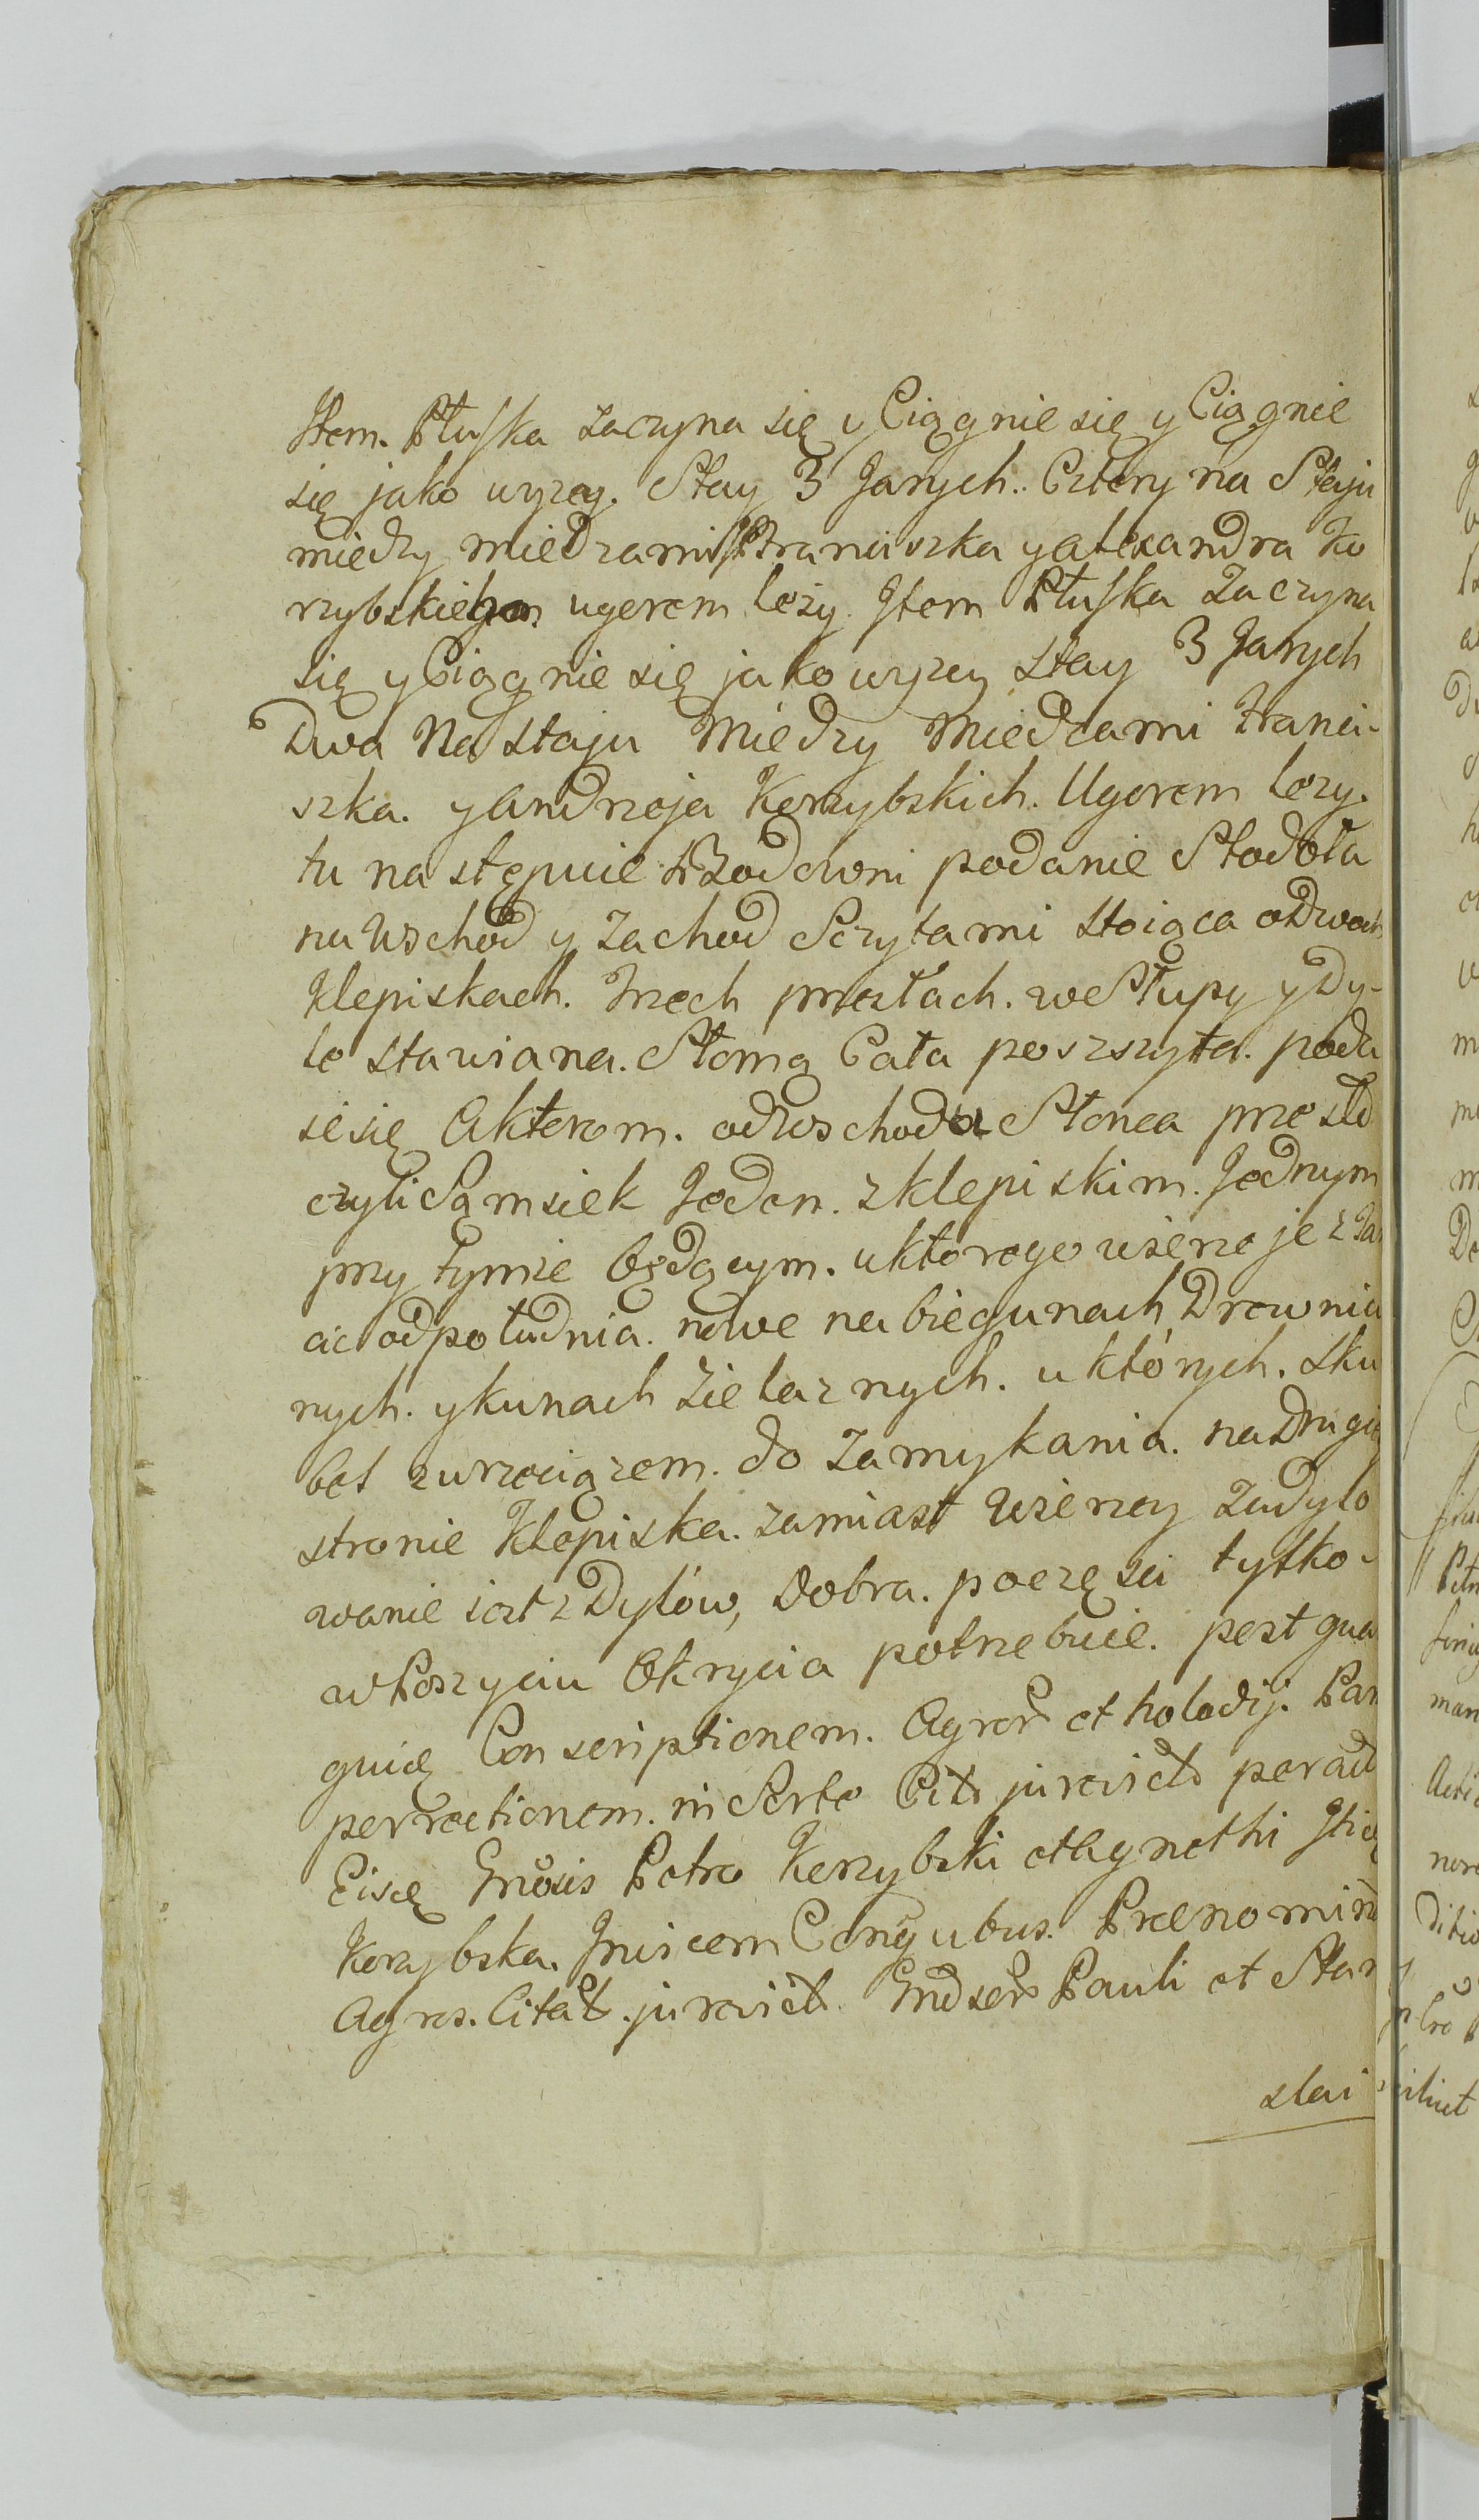 Item. Płuska zaczyna się y Ciągnie się y Ciągnie
się jako wyzey. Stay 3 Jarych. Cztery na Staju
miedzy miedzami Franciszka y alexandra Ko
rzybskiego ugorem lezy. Item Płuska zaczyna
się y Ciągnie się jako wyzey stay 3 Jarych
Dwa Na staju Miedzy Miedzami Franci-
szka. y Andrzeja Korzybskich. Ugorem lezy.
tu następuie podanie Stodoła
na Wschod y Zachod Sczytami stoiąca o dwoch
Klepiskach. Trzech przesłach. we Słupy y Dy-
le stawiana. Słomą Cała poszszyta. poda
ie się Aktorom. od Wschodu Słonca przesło
czyli Sąmsiek Jeden. z klepiskim. Jednym
przy tymze będącym. u ktorego wierzeje
od południa. nowe na biegunach Drewnia
nych. y kunach zielaznych. u których. sku
bel z wrzeciązem. do zamykania. na Drugie
stronie Klepiska. zamiast wierzey zadylo
wanie iest z Dylów, Dobra. poczęsci tylko
w Poszyciu Okrycia potrzebuie. post
Conscriptionem. Agror et holodij.
in Sorte
Petro Korzybski et Agnethi
Korzybska. Invicem Conjugubus. Prenomin
Agros. Citat. Pauli et Stan
slai